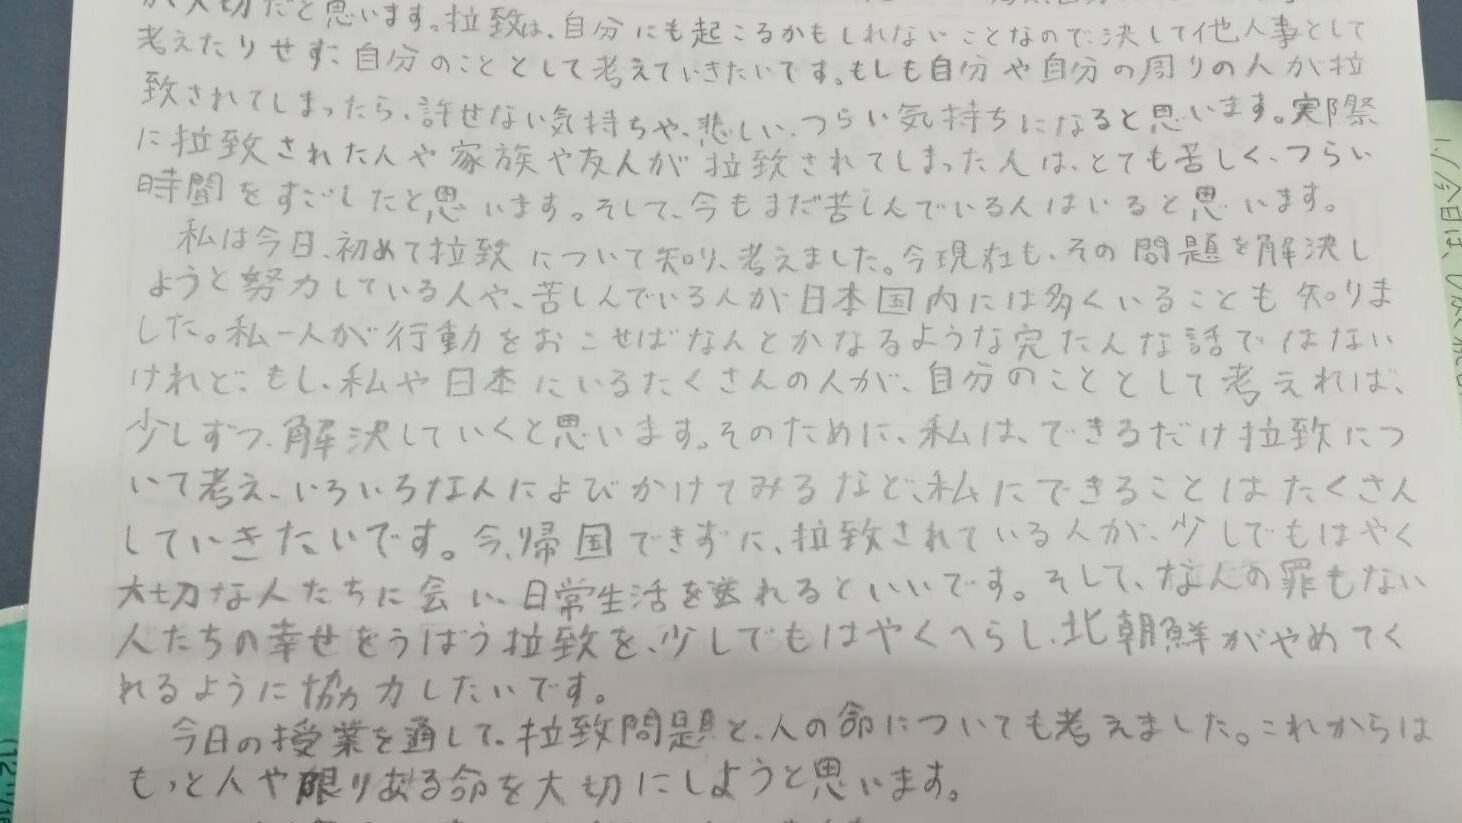 が大切だと思います。拉致は、自分にも起こるかもしれないことなので、決して他人事として
考えたりせず、自分のこととして考えていきたいです。もしも自分や自分の周りの人が拉
致されてしまったら、許せない気持ちや、悲しい、つらい気持ちになると思います。実際
に拉致された人や家族や友人が拉致されてしまった人は、とても苦しく、つらい
時間をすごしたと思います。そして、今もまだ苦しんでいる人はいると思います。
私は今日、初めて拉致について知り、考えました。今現在も、その問題を解決し
ようと努力している人や、苦しんでいる人が日本国内には多くいることも知りま
した。私一人が行動をおこせばなんとかなるような完たんな話ではない
けれど、もし、私や日本にいるたくさんの人が、自分のこととして考えれば、
少しずつ、解決していくと思います。そのために、私は、できるだけ拉致につ
いて考え、いろいろな人によびかけてみるなど、私にできることはたくさん
していきたいです。今、帰国できずに、拉致されている人が、少しでもはやく
大切な人たちに会い、日常生活を送れるといいです。そして、なんの罪もない
人たちの幸せをうばう拉致を、少しでもはやくへらし、北朝鮮がやめてく
れるように協力したいです。
今日の授業を通して、拉致問題と、人の命についても考えました。これからは
もっと人や限りある命を大切にしようと思います。